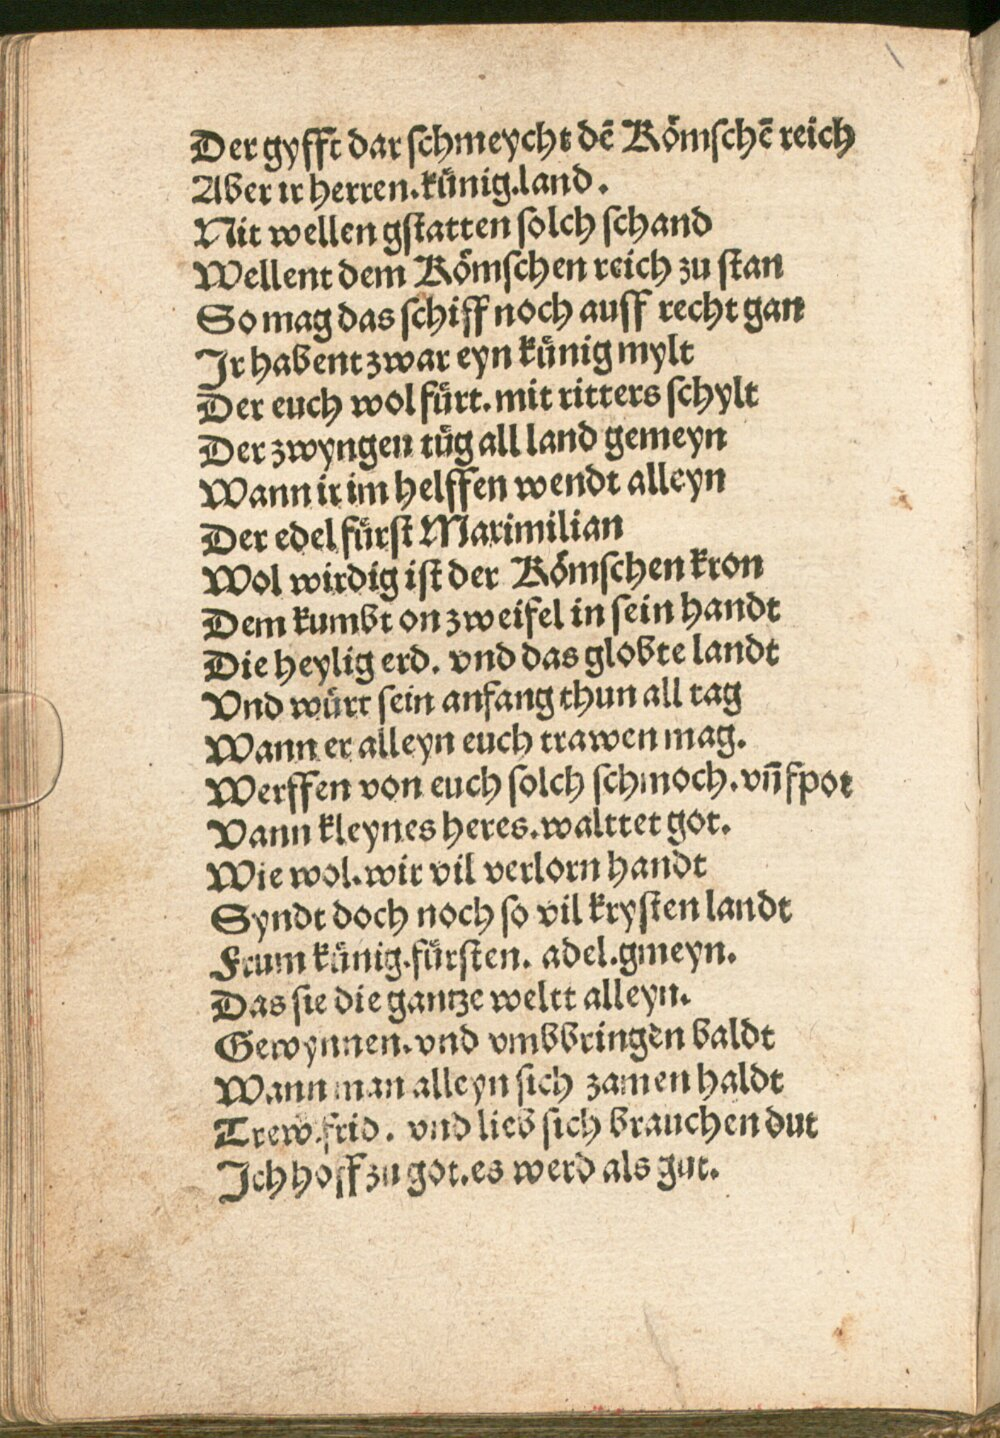 Der gyfft dar schmeycht dē Rômschē reich
Aber ir herren.kůnig.land.
Nit wellen gstatten solch schand
Wellent dem Rômschen reich zu stan
So mag das schiff noch auff recht gan
Jr habent zwar eyn kůnig mylt
Der euch wol fůrt.mit ritters schylt
Der zwyngen tůg all land gemeyn
Wann ir im helffen wendt alleyn
Der edel fůrst Maximilian
Wol wirdig ist der Rômschen kron
Dem kumbt on zweifel in sein handt
Die heylig erd. vnd das globte landt
Vnd wůrt sein anfang thun all tag
Wann er alleyn euch trawen mag.
Werffen von euch solch schmoch.vn̄ spot
Vann kleynes heres.walttet got.
Wie wol.wir vil verlorn handt
Syndt doch noch so vil krysten landt
Frum kůnig.fůrsten. adel.gmeyn.
Das sie die gantze weltt alleyn.
Gewynnen.vnd vmbbringen baldt
Wann man alleyn sich zamen haldt
Trew.frid. vnd lieb sich brauchen dut
Jch hoff zu got.es werd als gut.